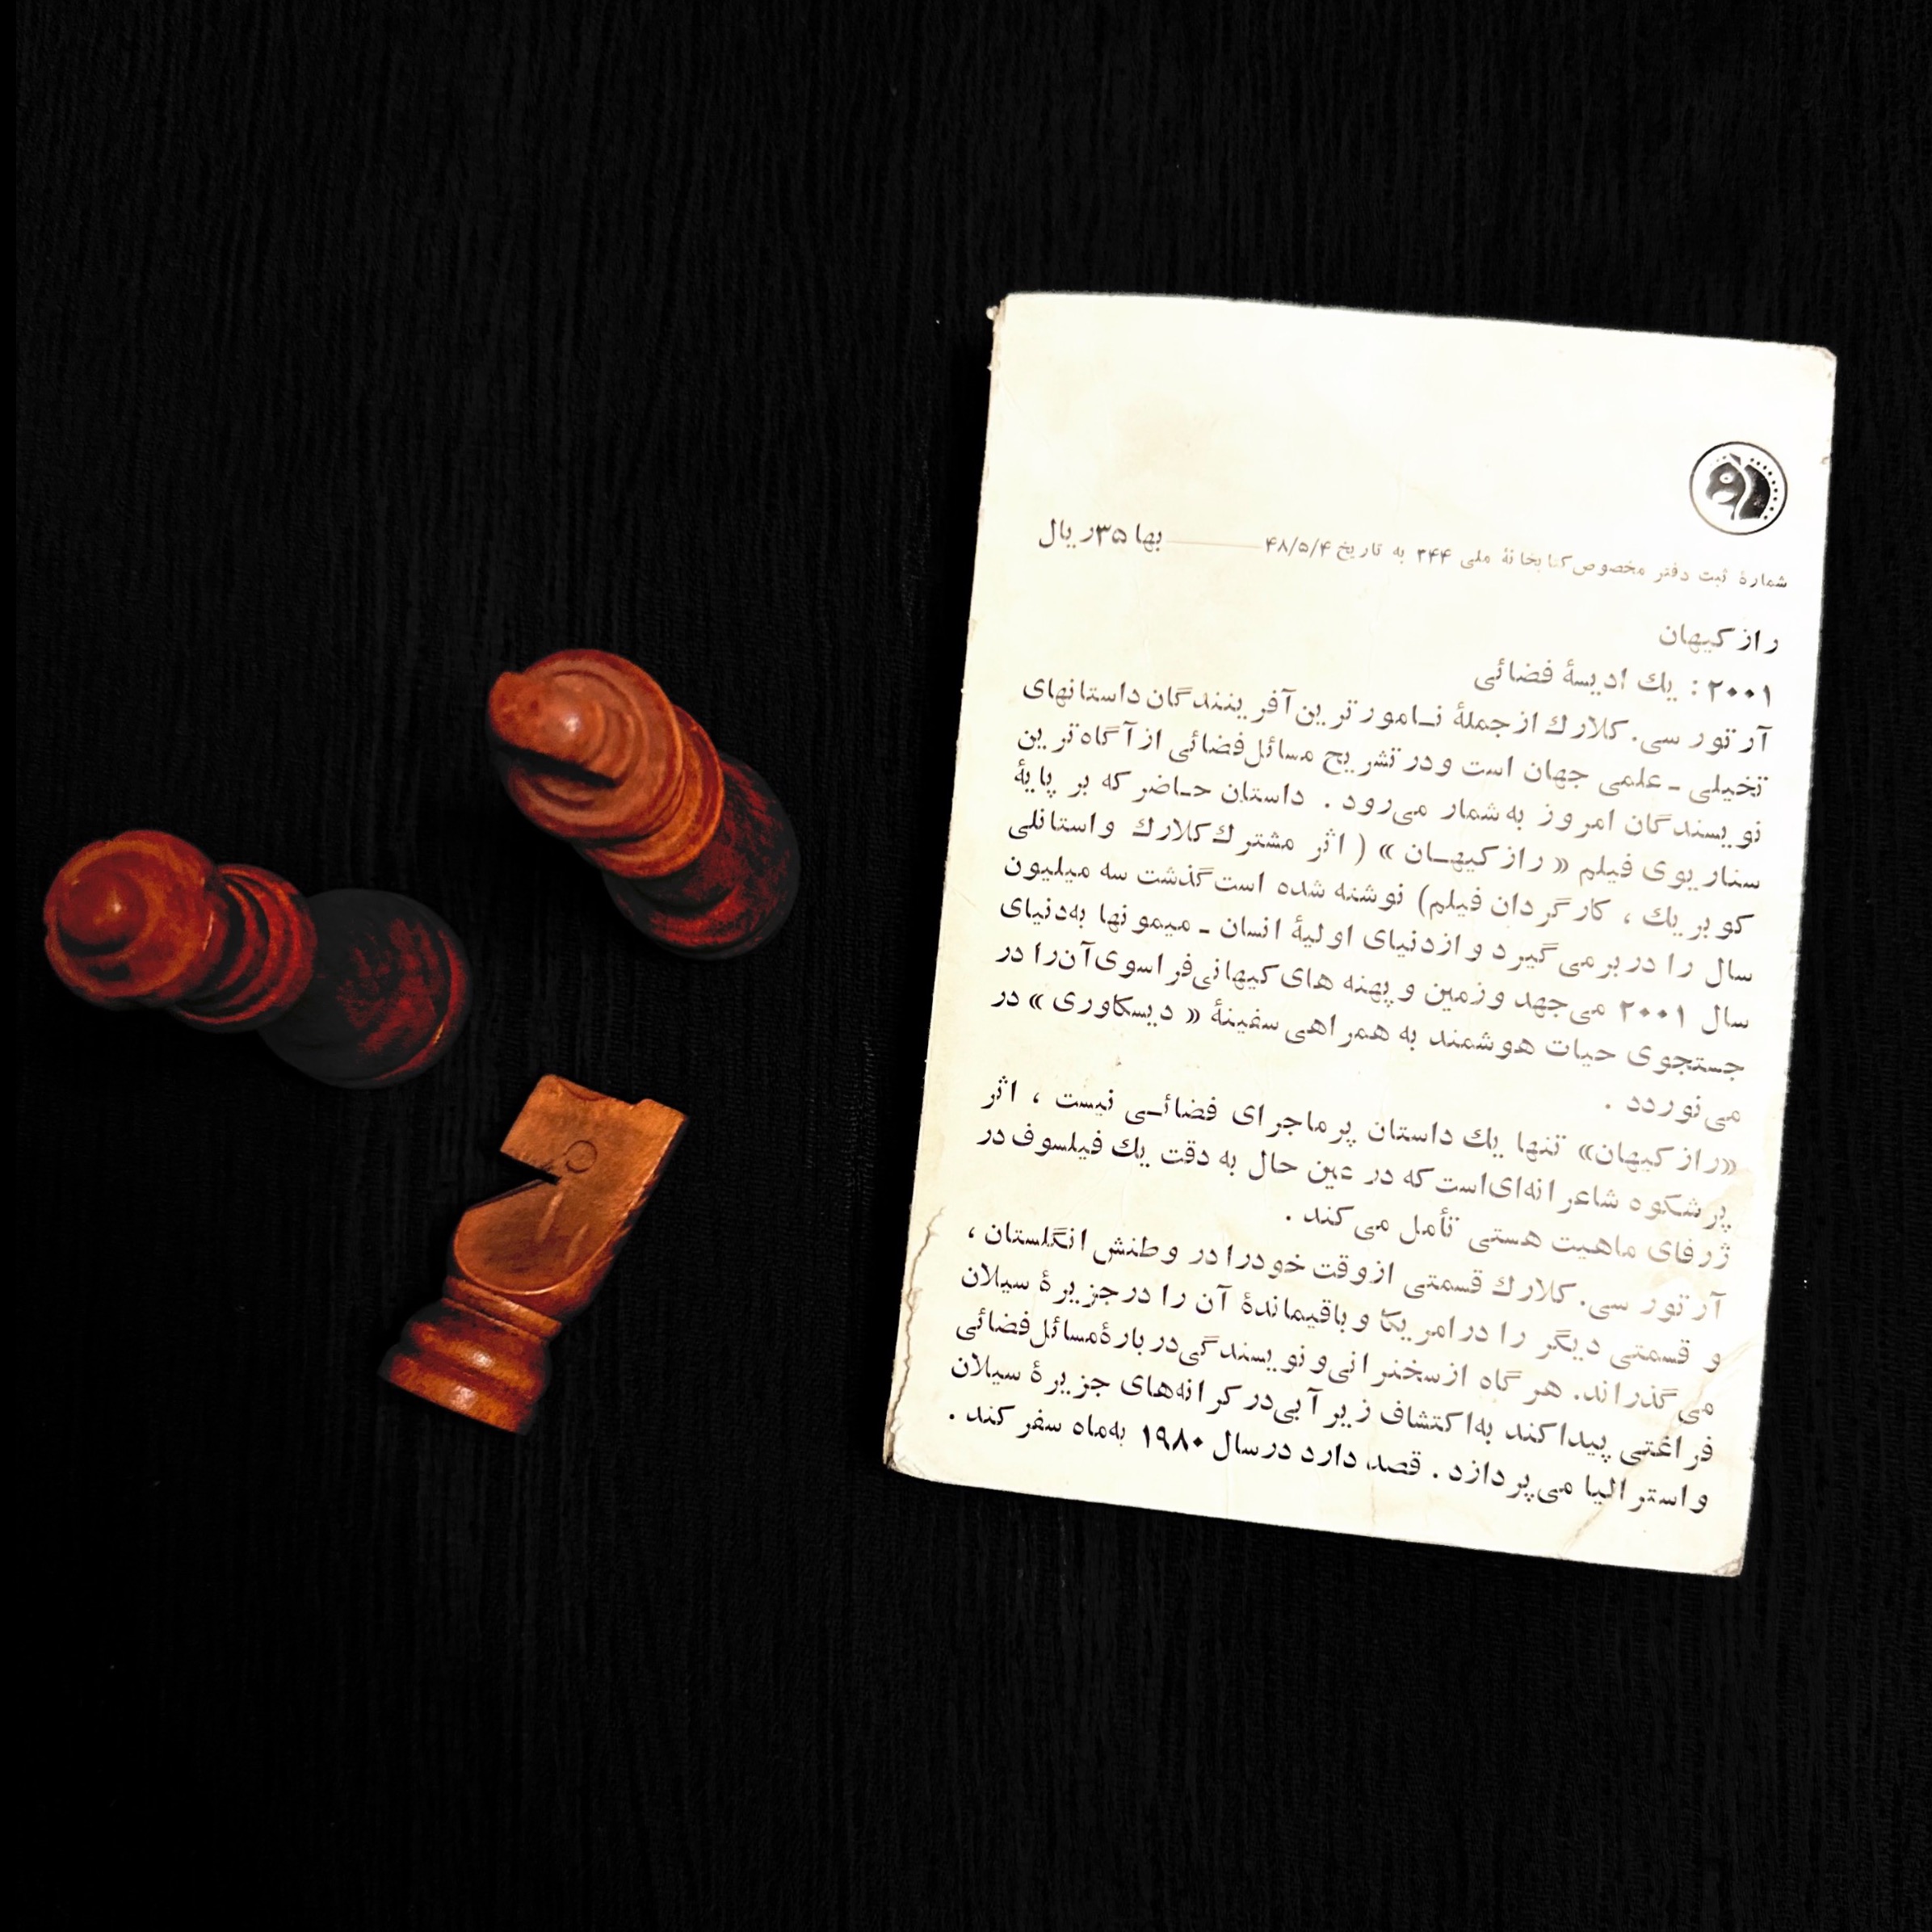 شمارهٔ ثبت دفتر مخصوص کتابخانهٔ ملی ۳۴۴ به تاریخ ۴۸/۵/۴ بها ۳۵ ریال
راز کیهان
۲۰۰۱ : یك ادیسهٔ فضائی
آرتور سی. کلارك از جملهٔ نامورترین آفرینندگان داستانهای
تخیلی - علمی جهان است و در تشریح مسائل فضائی از آگاه ترین
نویسندگان امروز به شمار می‌رود . داستان حاضر که بر پایهٔ
سناریوی فیلم « راز کیهان » ( اثر مشترك کلارك و استانلی
کوبریك ، کارگردان فیلم) نوشته شده است گذشت سه میلیون
سال را در بر می گیرد و از دنیای اولیهٔ انسان - میمونها به‌دنیای
سال ۲۰۰۱ می‌جهد و زمین و پهنه های کیهانی فراسوی آن‌را در
جستجوی حیات هوشمند به همراهی سفینهٔ « دیسکاوری » در
می‌نوردد .
«راز کیهان» تنها یك داستان پرماجرای فضائی نیست ، اثر
پرشکوه شاعرانه‌ای‌است که در عین حال به دقت یك فیلسوف در
ژرفای ماهیت هستی تأمل می‌کند .
آرتور سی. کلارك قسمتی از وقت خود را در وطنش انگلستان ،
و قسمتی دیگر را در امریکا و باقیماندهٔ آن را در جزیرهٔ سیلان
می گذراند. هر گاه از سخنرانی و نویسندگی در بارهٔ مسائل فضائی
فراغتی پیدا کند به‌اکتشاف زیر آبی در کرانه‌های جزیرهٔ سیلان
و استرالیا می‌پردازد . قصد دارد در سال ۱۹۸۰ به‌ماه سفر کند .